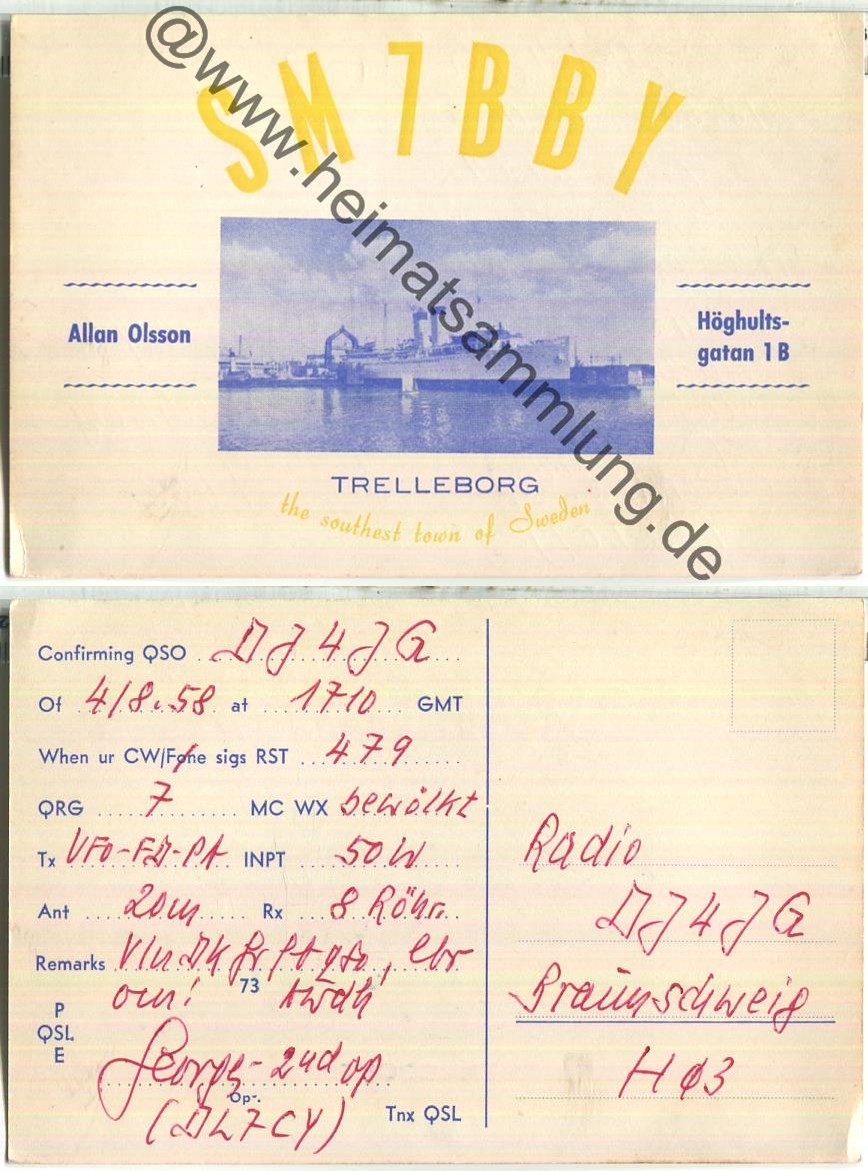 SM7BBY
@www.heimatsammlung.de
Allan Olsson
Höghults-
gatan 1B
TRELLEBORG
the southest town of Sweden
Confirming QSO DJ4JG
Of 4/8.58 at 1710 GMT
When ur CW/Fone sigs RST 479
QRG 7 MC WX bewölkt
Tx VFO-FD-PA INPT 50W
Ant 20m Rx 8 Röhr.
Remarks Vln DK fr qso, lbr
om! 73
P
QSL
E
George - 2nd op
Op.
(DL7CY) Tnx QSL
Radio
DJ4JG
Braunschweig
HØ3